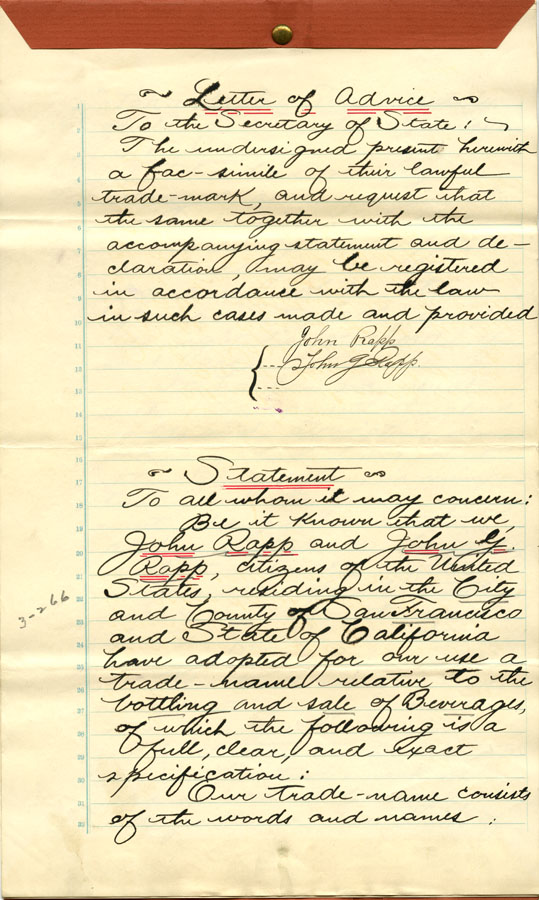 Letter of Advice
To the Secretary of State:
The undersigned present herewith
a fac-simile of their lawful
trade-mark, and request that
the same together with the
accompanying statement and de-
claration, may be registered
in accordance with the law
in such cases made and provided
John Rapp
John G Rapp.
Statement
To all whom it may concern:
Be it Known that we,
John Rapp and John G.
Rapp, citizens of the United
States, residing in the City
and County of San Francisco
and State of California
have adopted for our use a
trade-name relative to the
bottling and sale of Beverages,
of which the following is a
full, clear, and exact
specification:
Our trade-name consists
of the words and names:
3-266
1
2
3
4
5
6
7
8
9
10
11
12
13
14
15
16
17
18
19
20
21
22
23
24
25
26
27
28
29
30
31
32